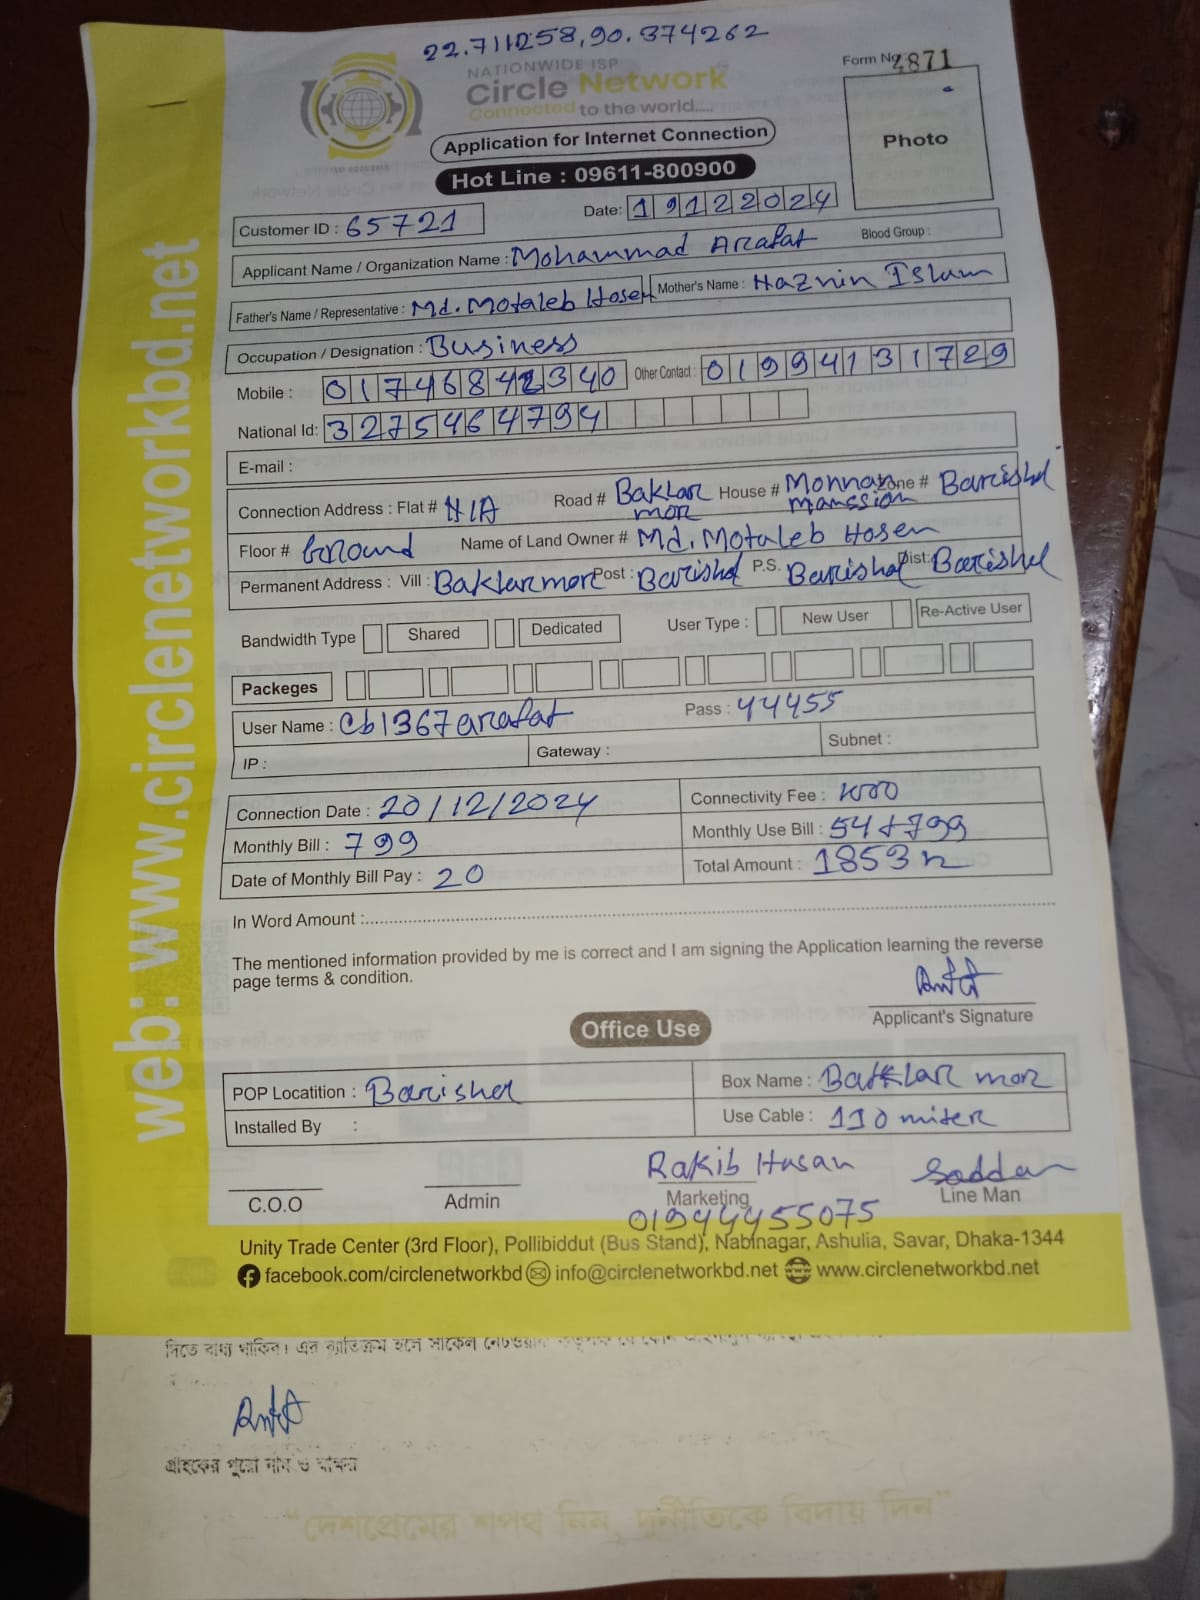 22.711258,90.374262
NATIONWIDE ISP
Circle Network
Connected to the world....
Form No 4871
Application for Internet Connection
Hot Line : 09611-800900
Photo
Customer ID : 65721
Date: 19122024
Applicant Name / Organization Name : Mohammad Arafat Blood Group :
Father's Name / Representative : Md. Motaleb Hosen Mother's Name : Naznin Islam
Occupation / Designation : Business
Mobile : 01746842340 Other Contact : 01994131729
National Id: 3275464794
E-mail :
Connection Address : Flat # N/A Road # Baklar mor House # Monnaz manssion Zone # Barishal
Floor # Ground Name of Land Owner # Md. Motaleb Hosen
Permanent Address : Vill : Baklarmor Post : Barishal P.S. Barishal Dist: Barishal
Bandwidth Type Shared Dedicated User Type : New User Re-Active User
Packeges
User Name : Cb1367arafat Pass : 44455
IP : Gateway : Subnet :
Connection Date : 20/12/2024 Connectivity Fee : 1000
Monthly Bill : 799 Monthly Use Bill : 54+799
Date of Monthly Bill Pay : 20 Total Amount : 1853
In Word Amount :
The mentioned information provided by me is correct and I am signing the Application learning the reverse
page terms & condition.
Applicant's Signature
Office Use
POP Locatition : Barishal Box Name : Batklar mor
Installed By : Use Cable : 110 miter
Rakib Hasan Saddam
C.O.O Admin Marketing Line Man
01944455075
Unity Trade Center (3rd Floor), Pollibiddut (Bus Stand), Nabinagar, Ashulia, Savar, Dhaka-1344
facebook.com/circlenetworkbd info@circlenetworkbd.net www.circlenetworkbd.net
web: www.circlenetworkbd.net
দিতে বাধ্য থাকিব। এর ব্যতিক্রম হলে সার্কেল নেটওয়ার্ক
গ্রাহকের পুরো নাম ও স্বাক্ষর
“দেশপ্রেমের শপথ নিন, দুর্নীতিকে বিদায় দিন”